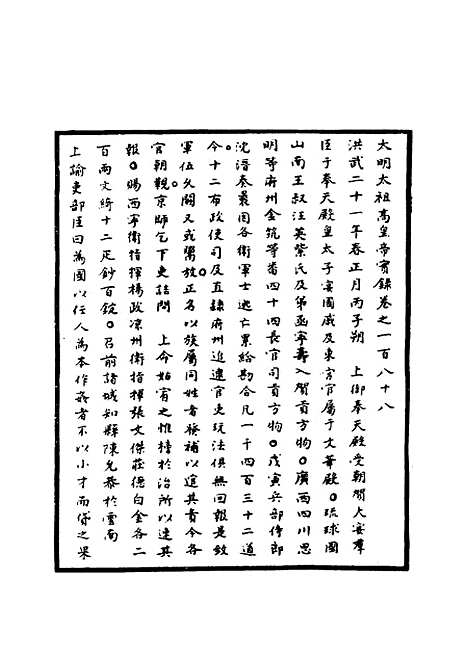 大明太祖高皇帝實錄卷之一百八十八
洪武二十一年春正月丙子朔　上御奉天殿受朝賀大宴羣
臣于奉天殿皇太子宴國戚及東宮官屬于文華殿○琉球國
山南王叔汪英紫氏及弟函寧壽入賀貢方物○廣西四川思
明等府州金筑等番四十四長官司貢方物○戊寅兵部侍郎
沈溍奏曩因各衛軍士逃亡累給勘合凡一千四百三十二道
令十二布政使司及直隸府州追逮官吏玩法俱無回報是致
軍伍久闕又或賣放正名以族屬同姓者發補以逭其責今各
官朝覲京師乞下吏詰問　上命姑宥之惟榜於治所以速其
報○賜西寧衛指揮楊政凉州衛指揮張文傑莊德白金各二
百兩文綺十二疋鈔百錠○召前諸城知縣陳允恭於雲南
上諭吏部臣曰為國以任人為本作姦者不以小才而貸之果